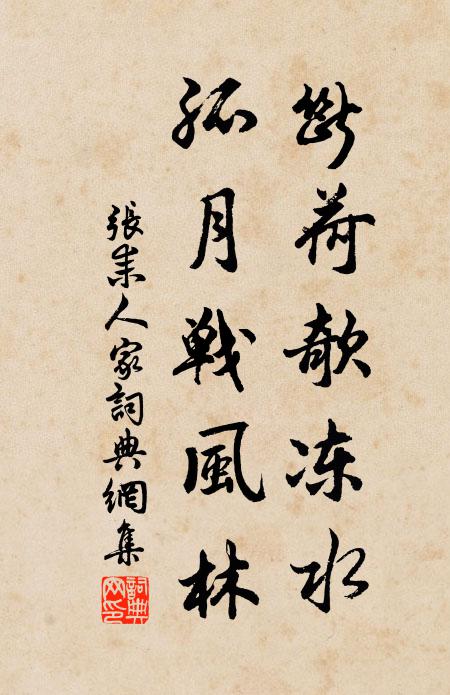 斷荷欹凍水
孤月戰風林
張耒人家詞典網集
詞典
网印